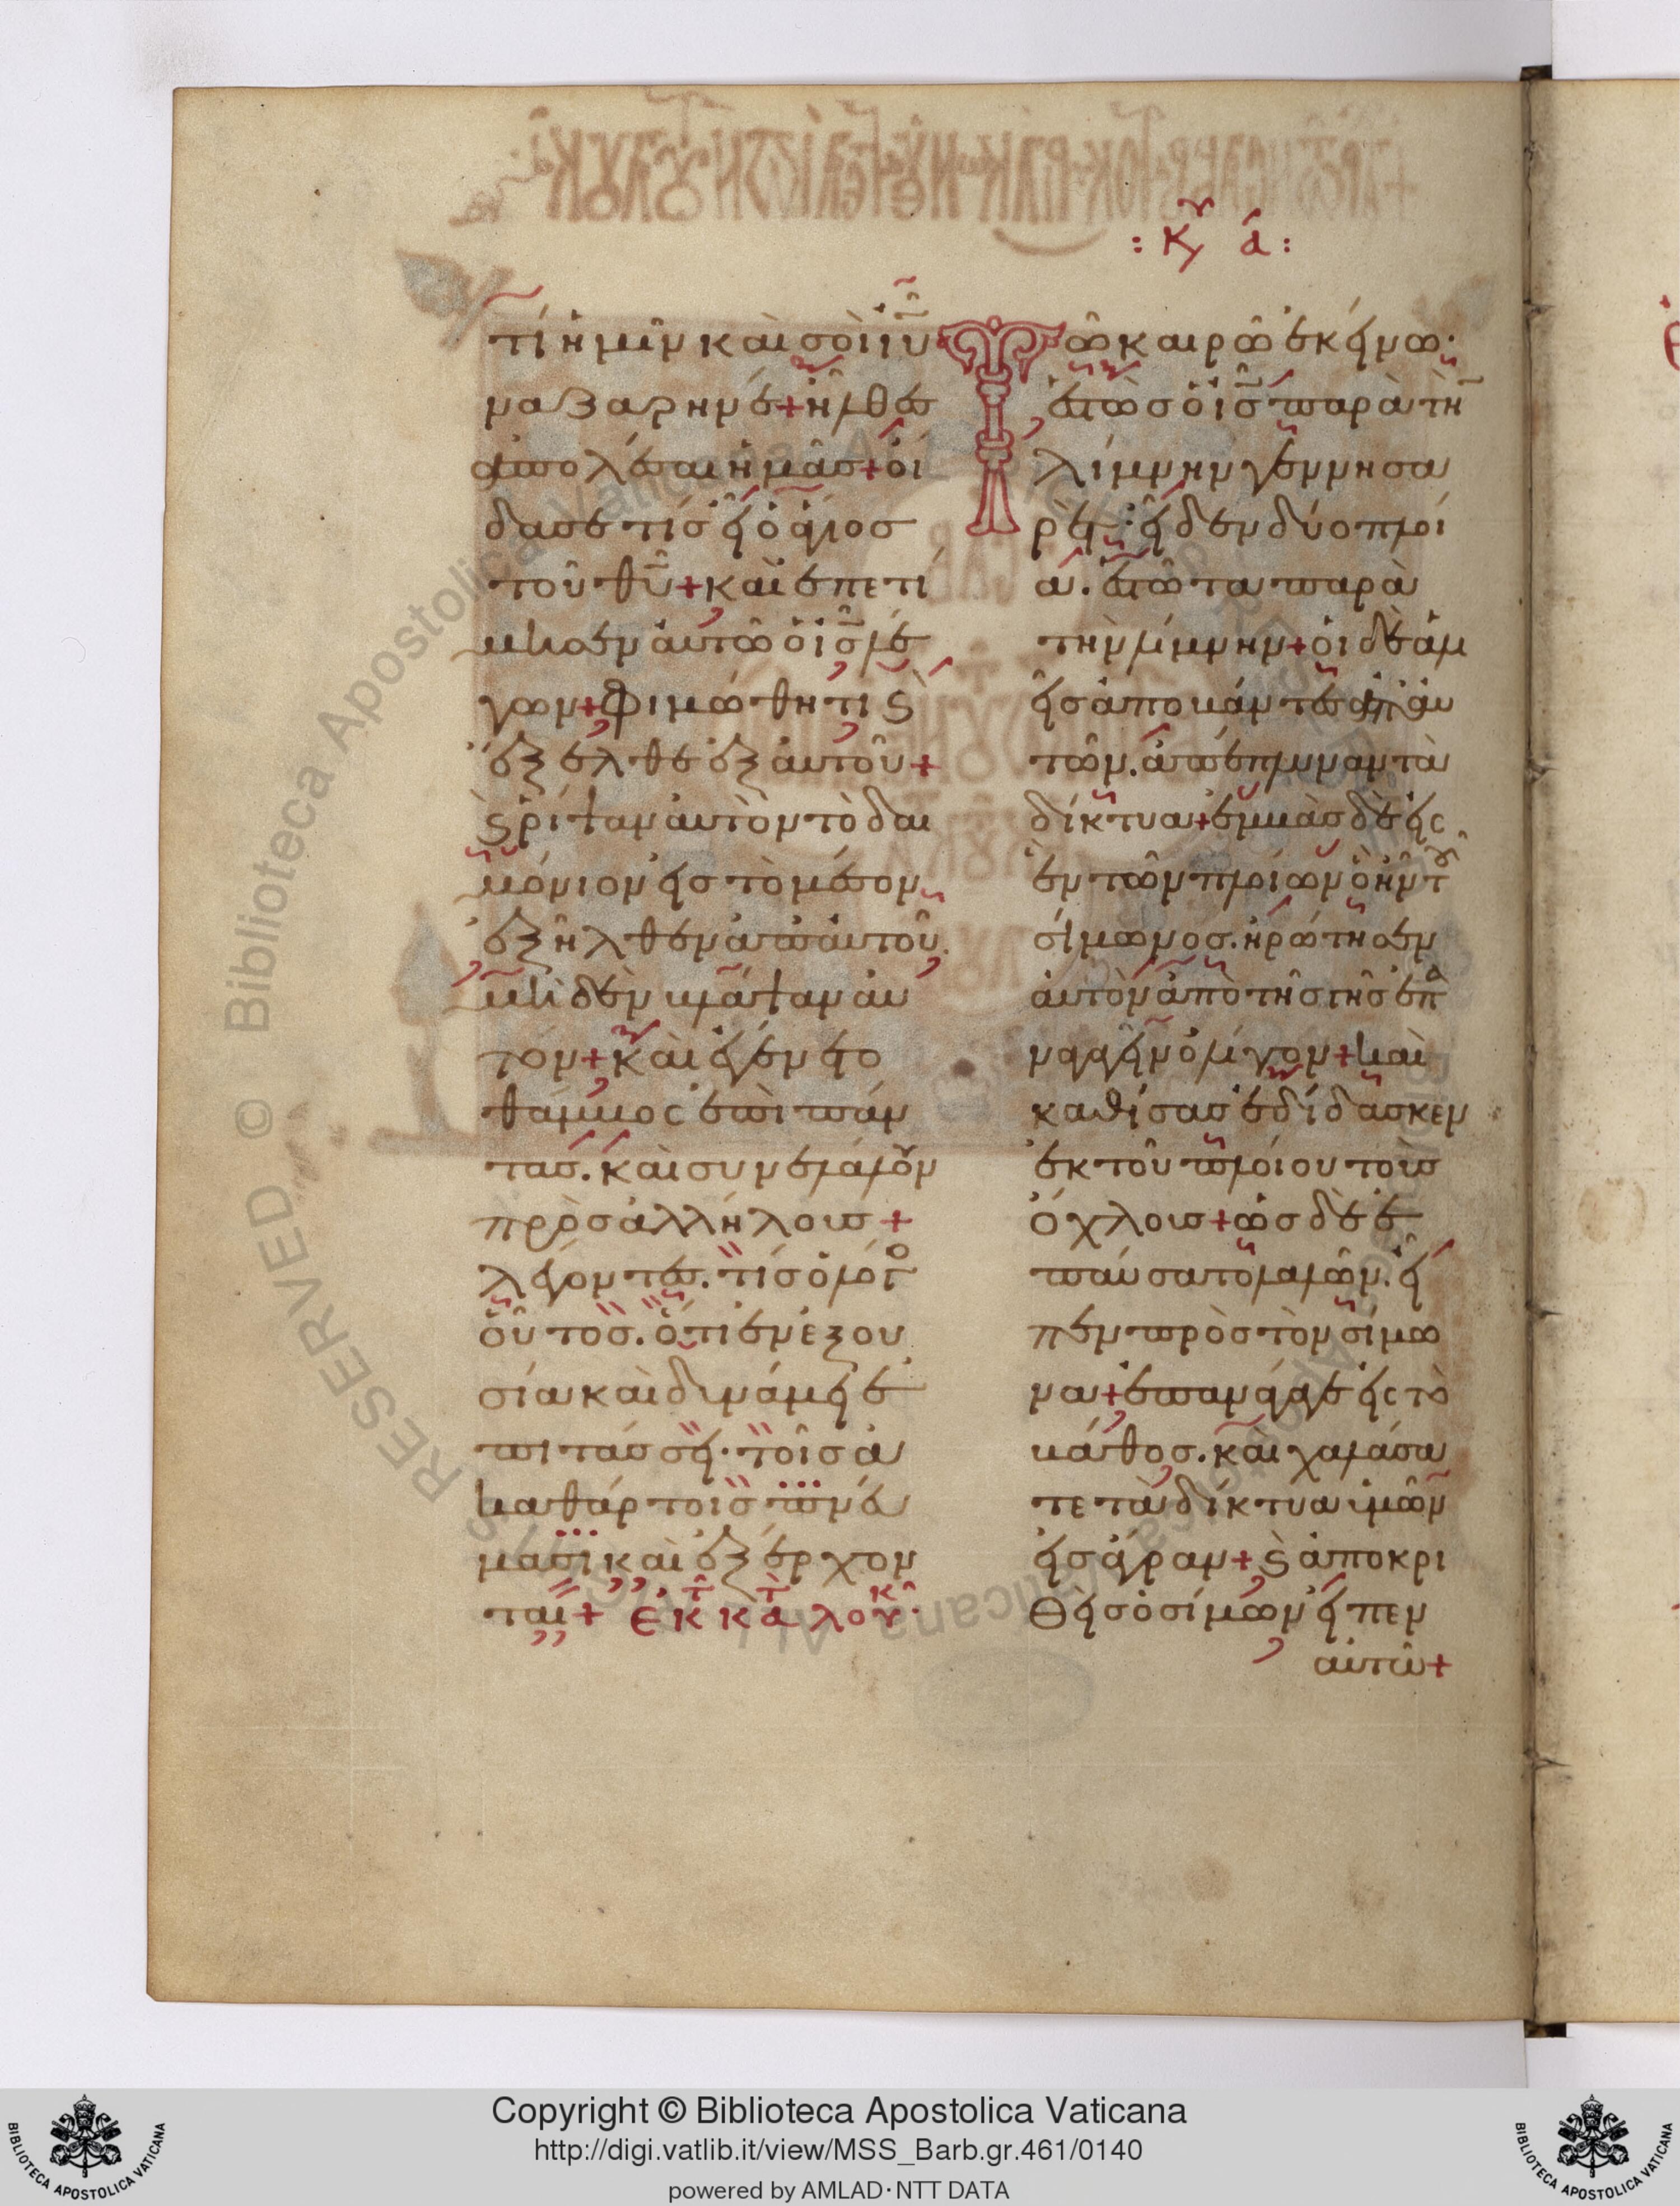 : κυ α :
τί ἡμῖν καὶ σοὶ ιυ
ναζαρηνέ + ἦλθες
ἀπολέσαι ἡμᾶς + οἶ
δα σε τίς εἶ ὁ ἅγιος
τοῦ θυ + καὶ ἐπετί
μησεν αὐτῶ ὁ ις λέ
γων + φιμώθητι ϗ
ἔξελθε ἐξ αὐτοῦ +
ϗ ρίψαν αὐτὸν τὸ δαι
μόνιον εἰς τὸ μέσον
ἐξῆλθεν ἀπ αὐτοῦ.
μηδὲν βλάψαν αὐ
τόν + καὶ ἐγένετο
θάμβος ἐπὶ πάν
τας. καὶ συνελάλουν
πρὸς ἀλλήλους +
λέγοντες. τίς ὁ λόγο
οὗτος. ὅτι ἐν ἐξου
σία καὶ δυνάμει ἐ
πιτάσσει. τοῖς ἀ
καθάρτοις πνεύ
μασι καὶ ἐξέρχον
ται + ἐκ τ κτ λουκ.
Τῶ καιρῶ ἐκείνω.
ἑστὼς ὁ ις παρὰ τὴ
λίμνην γεννησα
ρέτ : εἶδεν δύο πλοῖ
α. ἑστῶτα παρὰ
τὴν λίμνην + οἱ δὲ ἁλι
εῖς ἀποβάντες ἀπ αὐ
τῶν. ἀπέπλυναν τὰ
δίκτυα + ἐμβὰς δὲ εἰς
ἓν τῶν πλοίων ὃ ἦν τοῦ
σίμωνος. ἠρώτησεν
αὐτὸν ἀπὸ τῆς γῆς ἐπα
ναγαγεῖν ὀλίγον + καὶ
καθίσας ἐδίδασκεν
ἐκ τοῦ πλοίου τοὺς
ὄχλους + ὡς δὲ ἐ
παύσατο λαλῶν. εἶ
πεν πρὸς τὸν σίμω
να + ἐπανάγαγε εἰς τὸ
βάθος. καὶ χαλάσα
τε τὰ δίκτυα ὑμῶν
εἰς ἄγραν + ϗ ἀποκρι
θεὶς ὁ σίμων εἶπεν
αὐτῶ +
RESERVED © Biblioteca Apostolica Vaticana
Copyright © Biblioteca Apostolica Vaticana
http://digi.vatlib.it/view/MSS_Barb.gr.461/0140
powered by AMLAD·NTT DATA
BIBLIOTECA APOSTOLICA VATICANA
BIBLIOTECA APOSTOLICA VATICANA